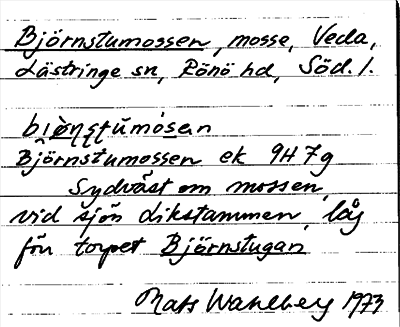 Björnstumossen, mosse, Veda,
Lästringe sn, Rönö hd, Söd. l.
biö̀ṇṣṭumósan
Björnstumossen ek 9H 7g
Sydväst om mossen,
vid sjön Likstammen, låg
förr torpet Björnstugan
Mats Wahlberg 1973